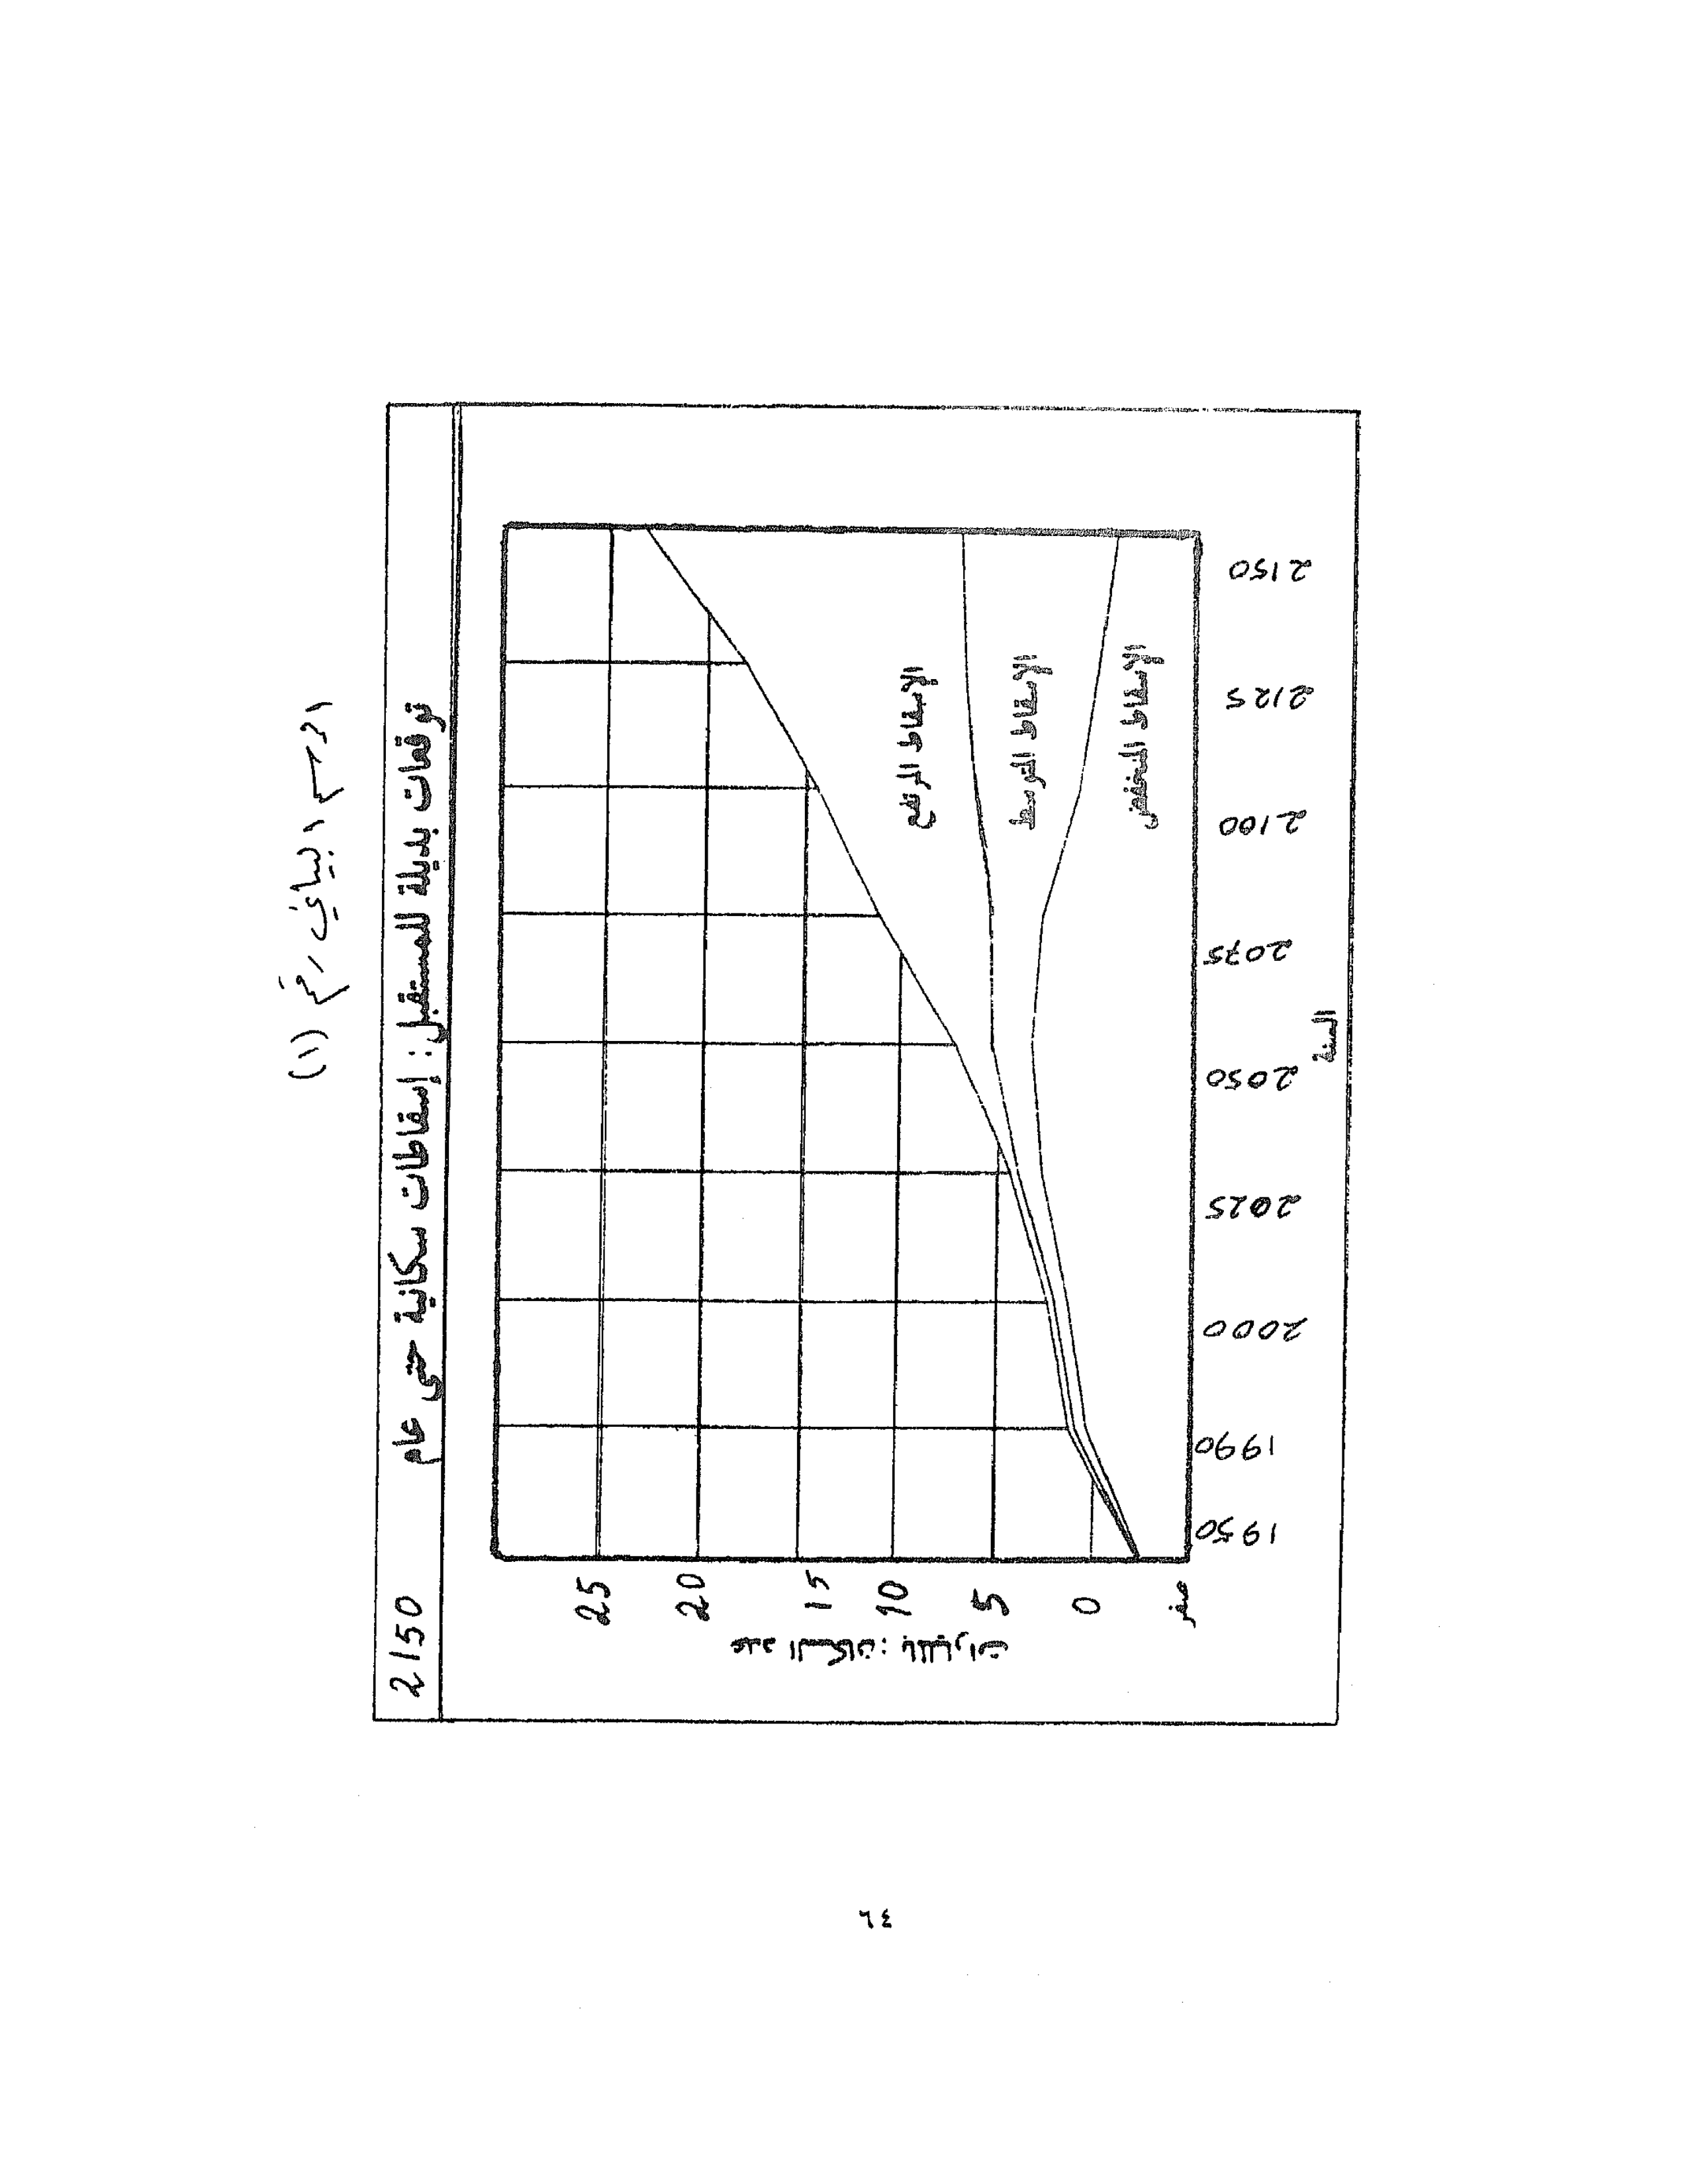 الرسم البياني رقم (١)
توقعات بديلة للمستقبل: إسقاطات سكانية حتى عام 2150
عدد السكان: بالمليارات
25
20
15
10
5
0
صفر
الإسقاط المرتفع
الإسقاط المتوسط
الإسقاط المنخفض
1950 1990 2000 2025 2050 2075 2100 2125 2150
السنة
٤٦